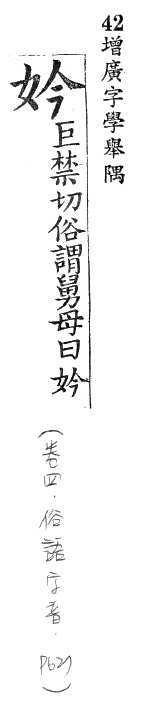 42增廣字學舉隅
妗巨禁切俗謂舅母曰妗
(卷四.俗語字音.P62)